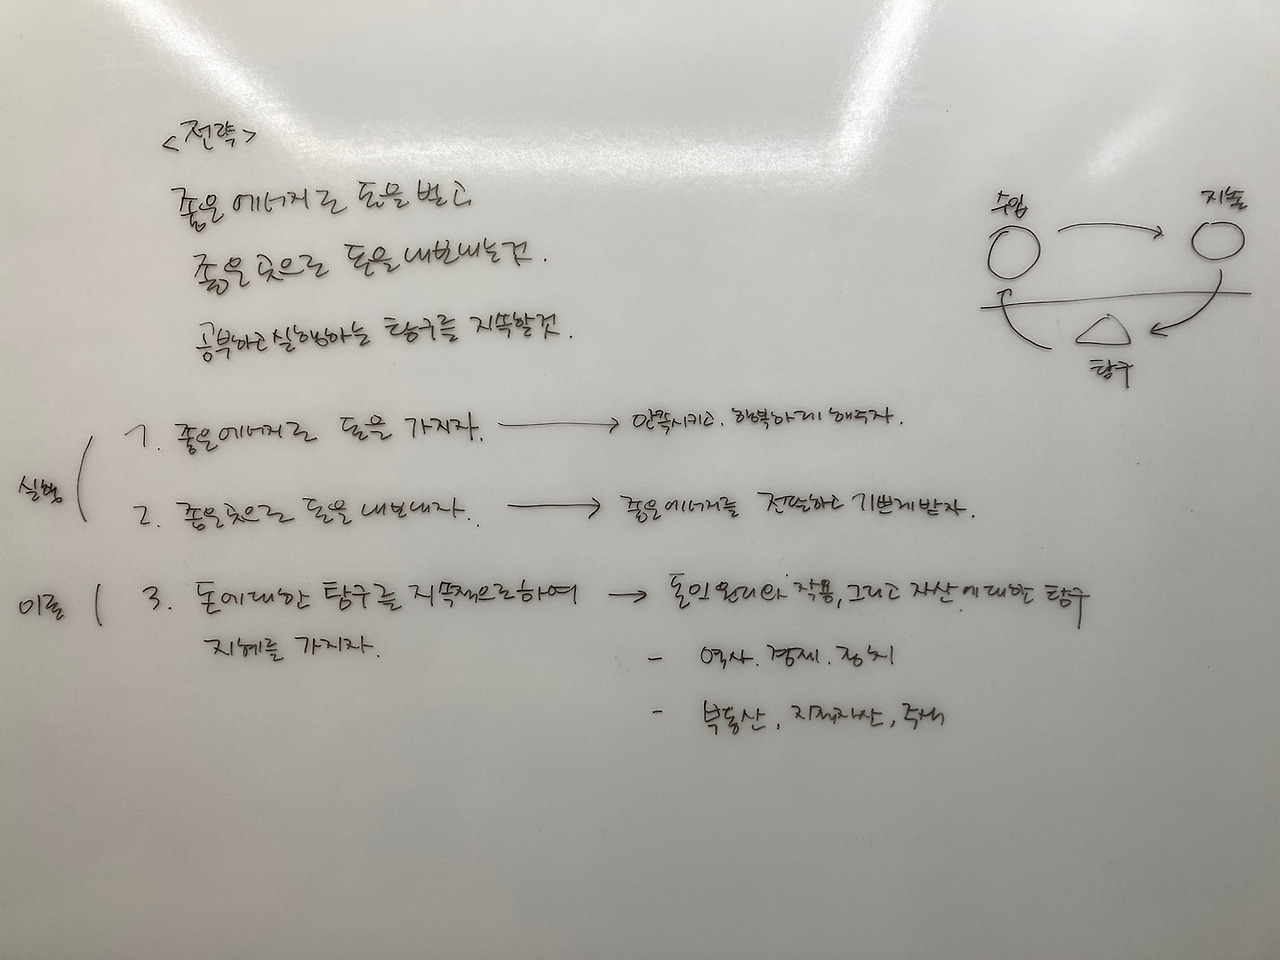 <전략>
좋은 에너지로 돈을 벌고
좋은 곳으로 돈을 내보내는 것.
공부하고 실행하는 탐구를 지속할 것.
수입
지출
탐구
실행
1. 좋은 에너지로 돈을 가지자. → 만족시키고, 행복하게 해주자.
2. 좋은 곳으로 돈을 내보내자. → 좋은 에너지를 전달하고 기쁘게 받자.
이론
3. 돈에 대한 탐구를 지속적으로 하여 → 돈의 원리와 작용, 그리고 자산에 대한 탐구
지혜를 가지자.
- 역사. 경제. 정치
- 부동산, 지적자산, 주식